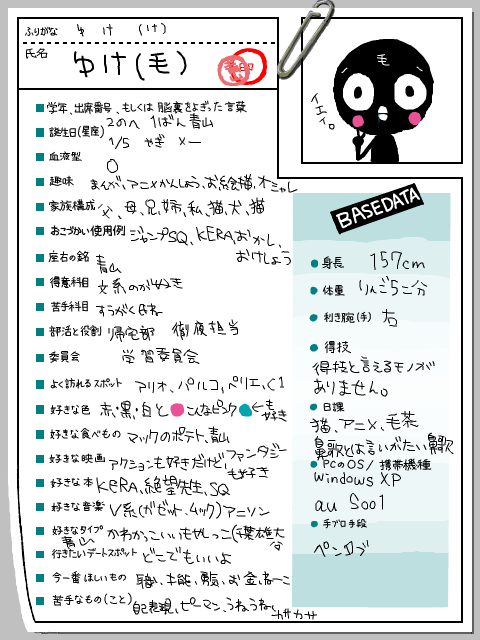 ふりがな ゆ け (け)
氏名 ゆけ(毛)
毛
イエイ。
学年、出席番号、もしくは脳裏をよぎった言葉
2のへ 1ばん 青山
誕生日(星座) 1/5 やぎ メー
血液型 O
趣味 まんが、アニメかんしょう、お絵描、オシャレ
家族構成 父、母、兄、姉、私、猫、犬、猫
おこづかい使用例 ジャンプSQ、KERA、おかし、
おけしょう
座右の銘 青山
得意科目 文系のが
苦手科目 すうがく
部活と役割 帰宅部 徹夜担当
委員会 学習委員会
よく訪れるスポット アリオ、パルコ、ペリエ、C1
好きな色 赤・黒・白と●こんなピンク●←も好き
好きな食べもの マックのポテト、青山
好きな映画 アクションも好きだけどファンタジーも好き
好きな本 KERA、絶望先生、SQ
好きな音楽 V系(ガゼット、ムック)アニソン
好きなタイプ かわかっこいいもやしっこ(千葉雄大
青山
行きたいデートスポット どこでもいいよ
今一番ほしいもの 職、才能、勇気、お金
苦手なもの(こと) 自己表現、ピーマン、うねうね、カサカサ
BASEDATA
身長 157cm
体重 りんご5こ分
利き腕(手) 右
得技
得技と言えるモノが
ありません。
日課
猫、アニメ、毛茶
鼻歌とは言いがたい鼻歌
PCのOS/携帯機種
Windows XP
au S001
手ブロ手段
ペンタブ